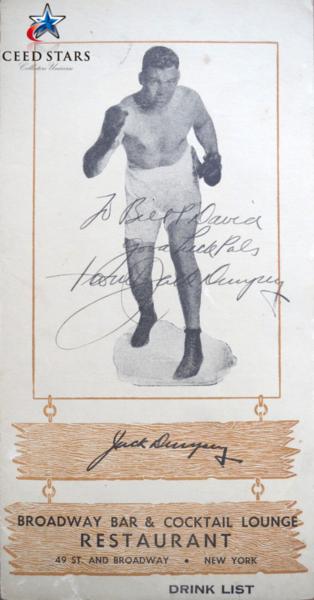 CEED STARS
Collectors Universe
To Bill & David
good luck Pals
Jack Dempsey
Jack Dempsey
BROADWAY BAR & COCKTAIL LOUNGE
RESTAURANT
49 ST. AND BROADWAY • NEW YORK
DRINK LIST